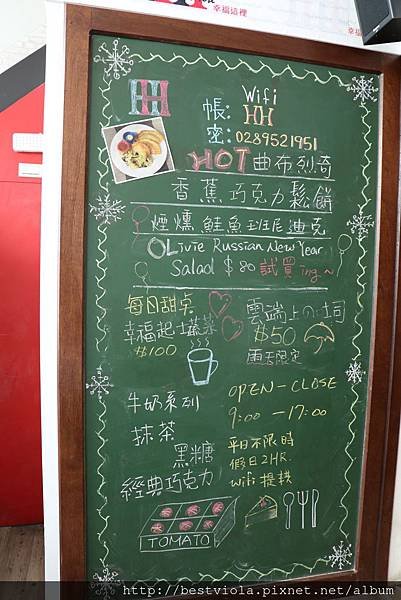 幸福這裡
Wifi
HH
帳: HH
密: 0289521951
HOT 曲布烈奇
香蕉巧克力鬆餅
煙燻鮭魚班尼迪克
OLivie Russian New Year
Salad $80 試賣ing~
每日甜点
幸福起士蔬菜
$100
雲端上の吐司
$50
雨天限定
牛奶系列
抹茶
黑糖
經典巧克力
OPEN-CLOSE
9:00-17:00
平日不限時
假日2HR.
wifi 提供
TOMATO
http://bestviola.pixnet.net/album